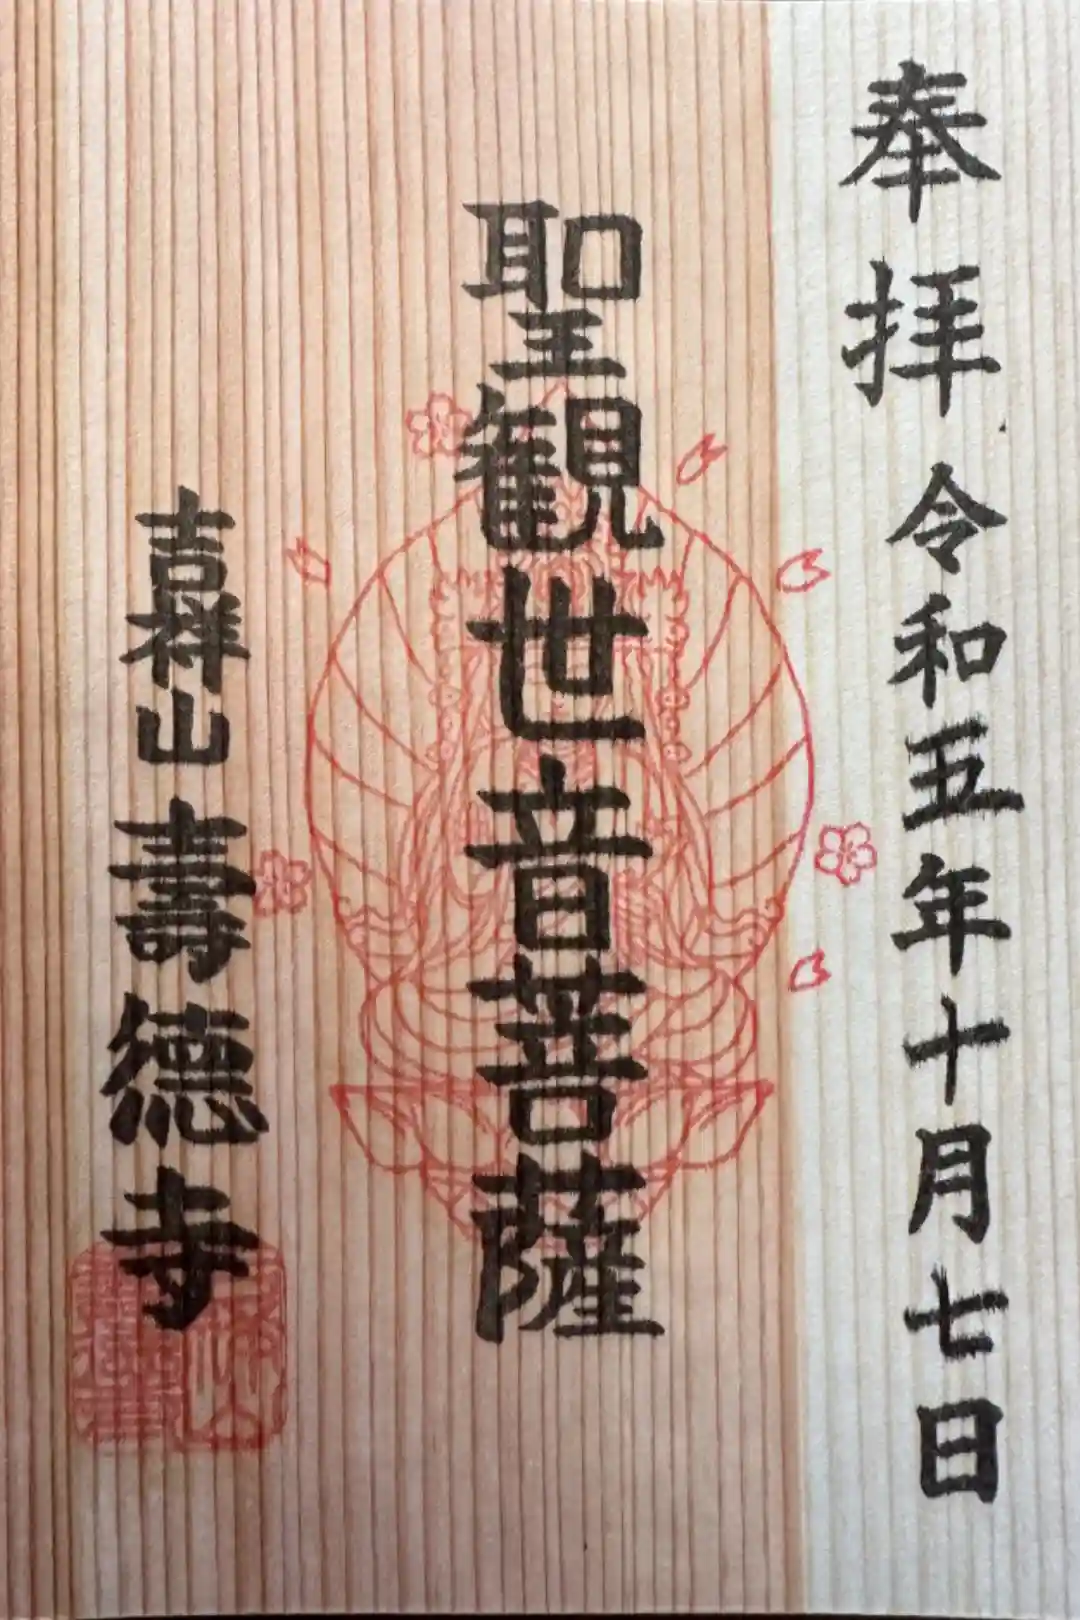 奉拝 令和五年十月七日
聖観世音菩薩
吉祥山 壽徳寺